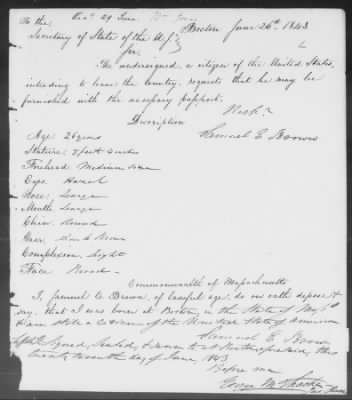 Rec.d 29 June
Boston June 26th 1843.
To the
Secretary of State of the U.S.
Sir
The undersigned, a citizen of the United States,
intending to leave the country, requests that he may be
furnished with the necessary passport.
Resp.
Samuel E. Brown
Description
Age. 26 years
Stature: 5 feet 4 inches
Forehead Medium size
Eyes. Hazel
Nose: Large
Mouth Large
Chin Round
Hair Dark Brown
Complexion, Light
Face Broad
Commonwealth of Massachusetts
I, Samuel E. Brown, of lawful age, do on oath depose &
say, that I was born at Boston, in the State of Mass
& am still a Citizen of the United States of America
Samuel E. Brown
Signed, Sealed, & Sworn to at Boston aforesaid, this
twenty seventh day of June 1843
Before me